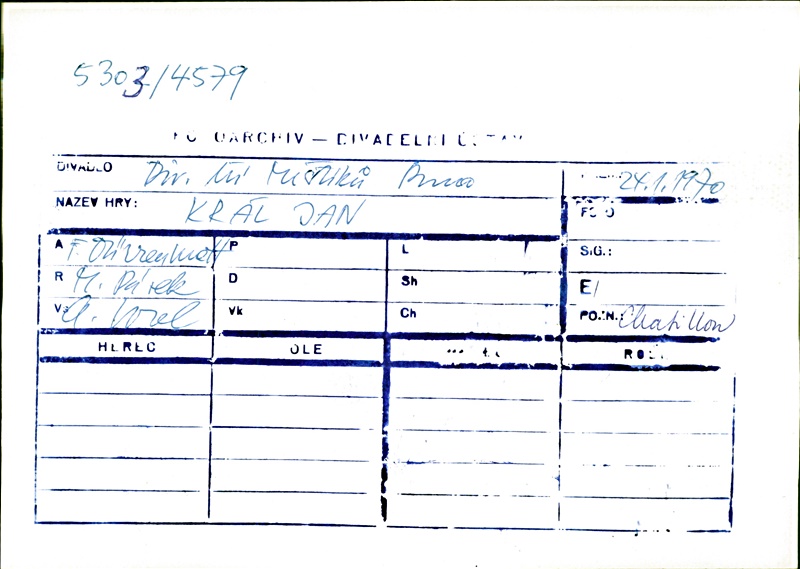 5303/4579
FOTOARCHIV — DIVADELNÍ ÚSTAV
DIVADLO Div. bří Mrštíků Brno 24.1.1970
NAZEV HRY: KRÁL JAN FOTO
A F. Dürrenmatt P L SIG.:
R M. Pásek D Sh E/
V: A. Vorel Vk Ch POZN.: Chatillon
HEREC ROLE ROLE